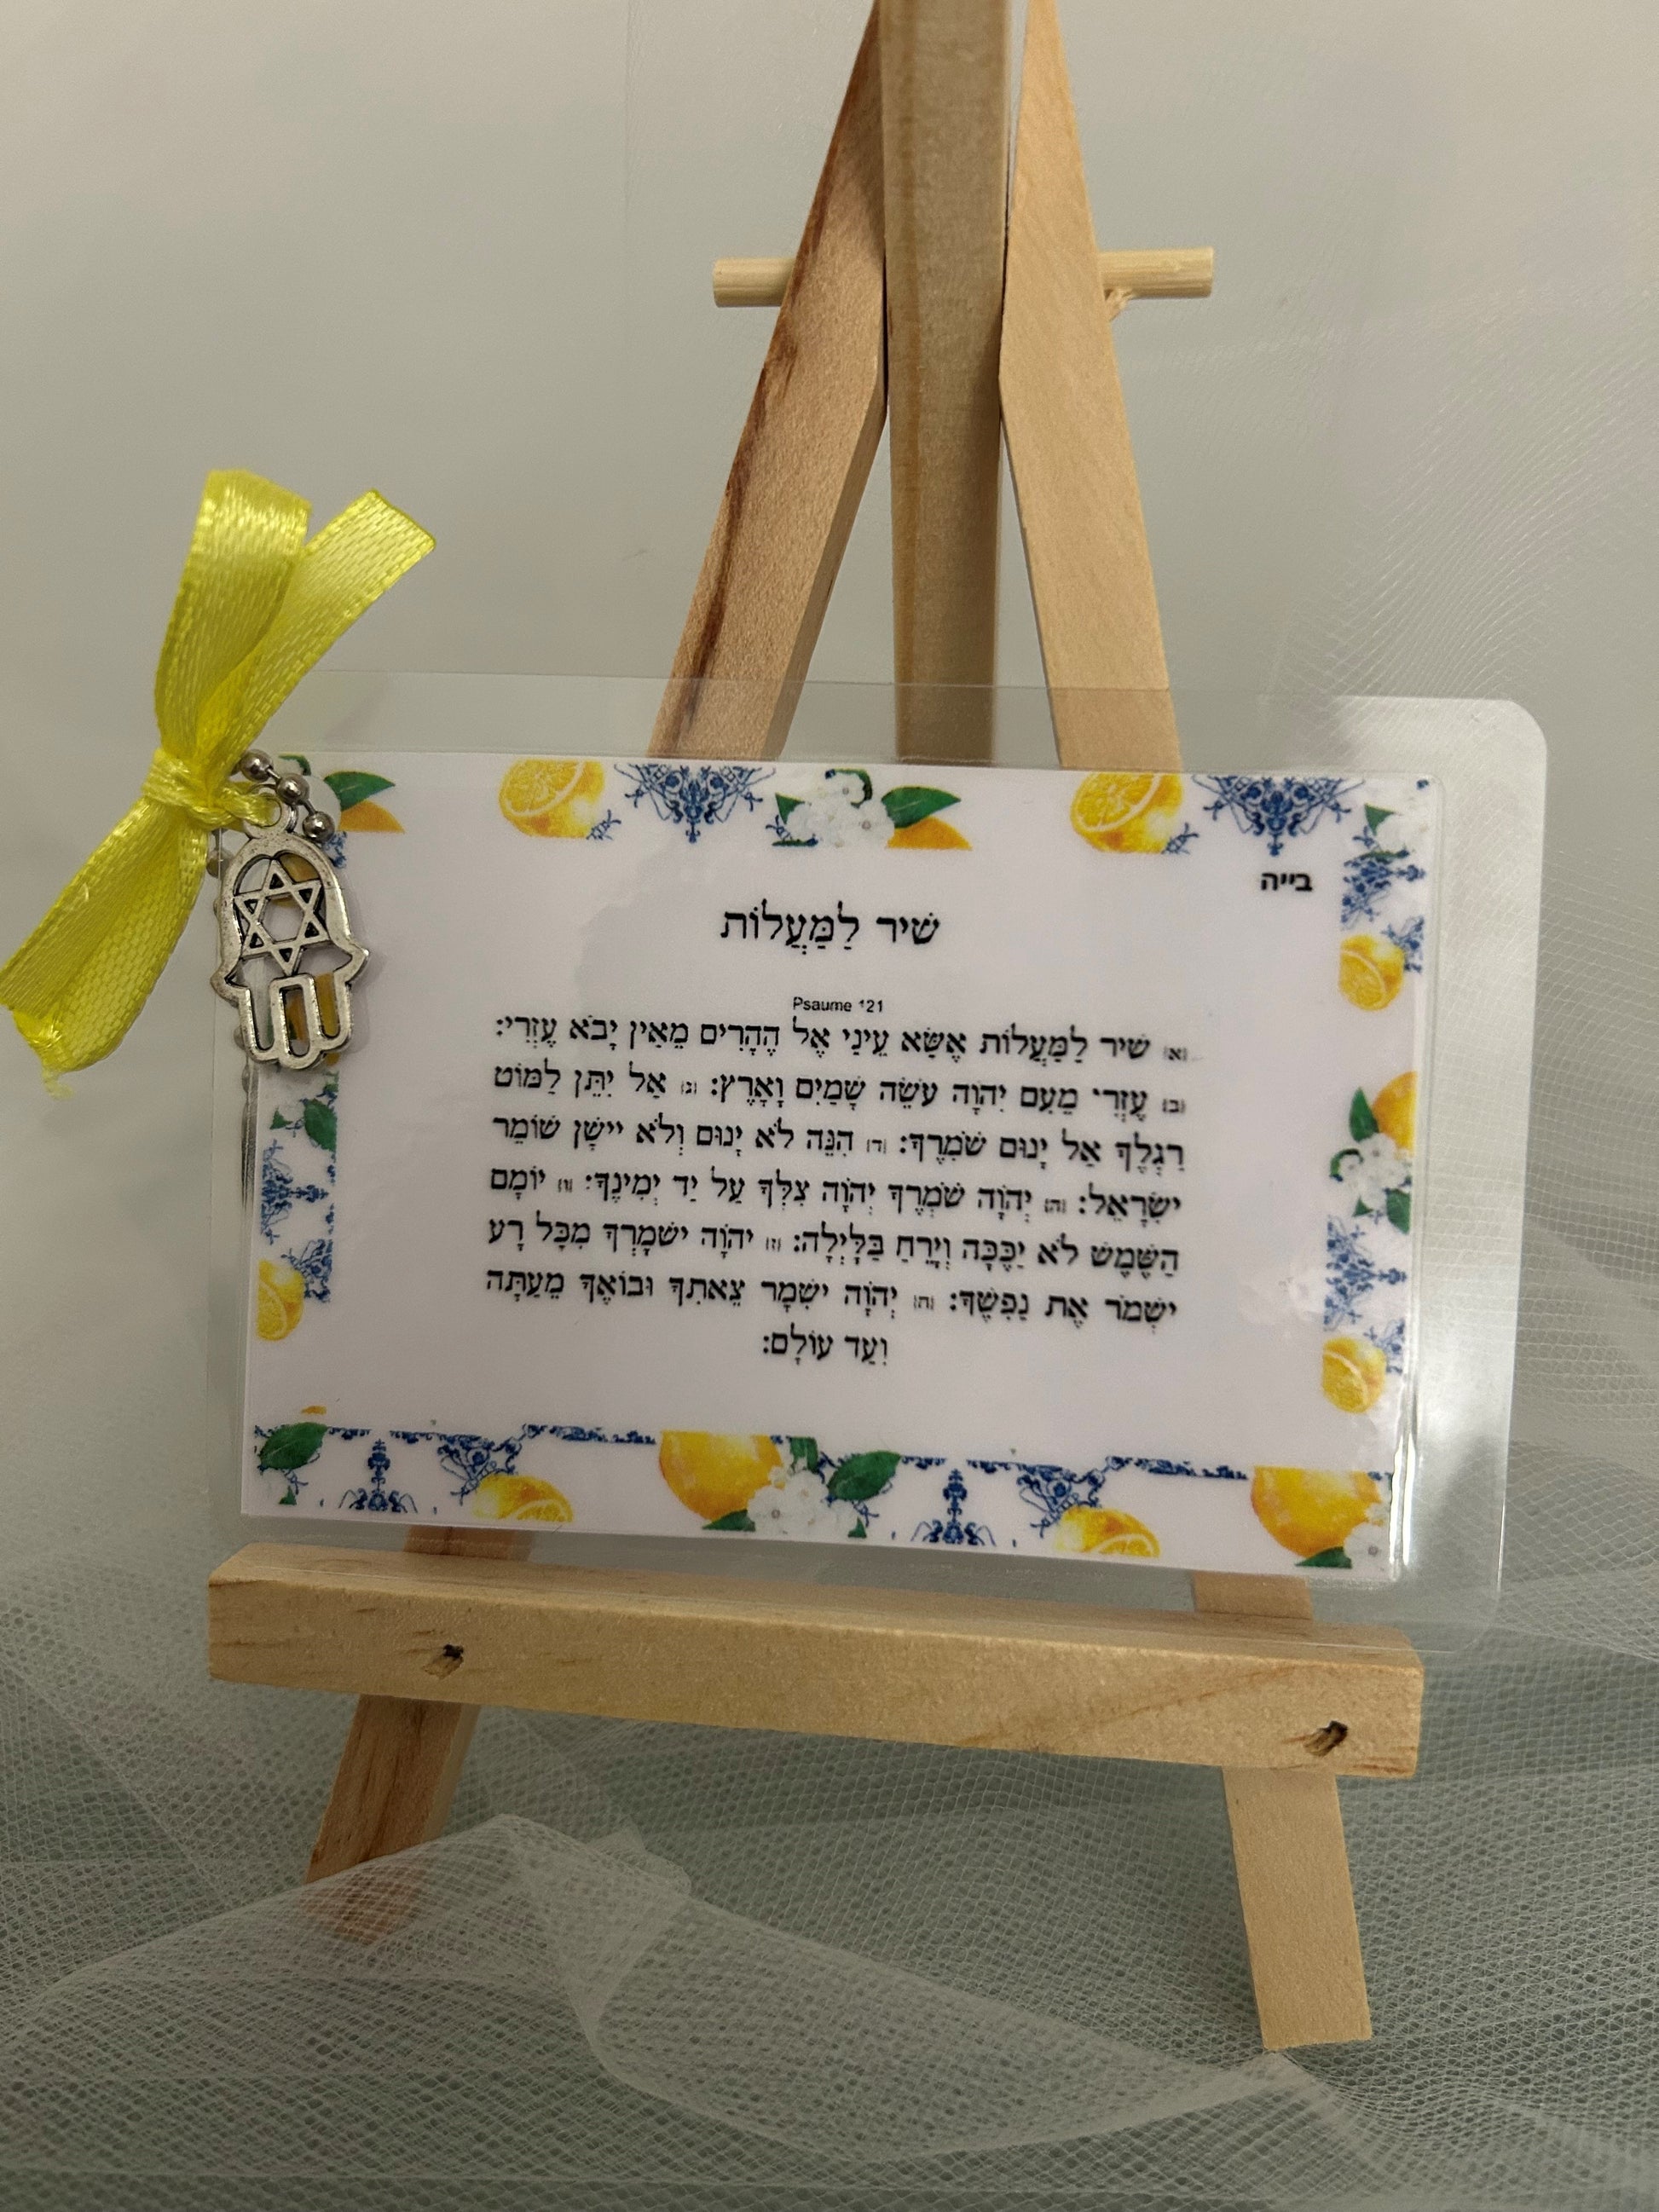 בייה
שִׁיר לַמַּעֲלוֹת
Psaume 121
(א) שִׁיר לַמַּעֲלוֹת אֶשָּׂא עֵינַי אֶל הֶהָרִים מֵאַיִן יָבֹא עֶזְרִי:
(ב) עֶזְרִי מֵעִם יְהוָה עֹשֵׂה שָׁמַיִם וָאָרֶץ: (ג) אַל יִתֵּן לַמּוֹט
רַגְלֶךָ אַל יָנוּם שֹׁמְרֶךָ: (ד) הִנֵּה לֹא יָנוּם וְלֹא יִישָׁן שׁוֹמֵר
יִשְׂרָאֵל: (ה) יְהוָה שֹׁמְרֶךָ יְהוָה צִלְּךָ עַל יַד יְמִינֶךָ: (ו) יוֹמָם
הַשֶּׁמֶשׁ לֹא יַכֶּכָּה וְיָרֵחַ בַּלָּיְלָה: (ז) יְהוָה יִשְׁמָרְךָ מִכָּל רָע
יִשְׁמֹר אֶת נַפְשֶׁךָ: (ח) יְהוָה יִשְׁמָר צֵאתְךָ וּבוֹאֶךָ מֵעַתָּה
וְעַד עוֹלָם: